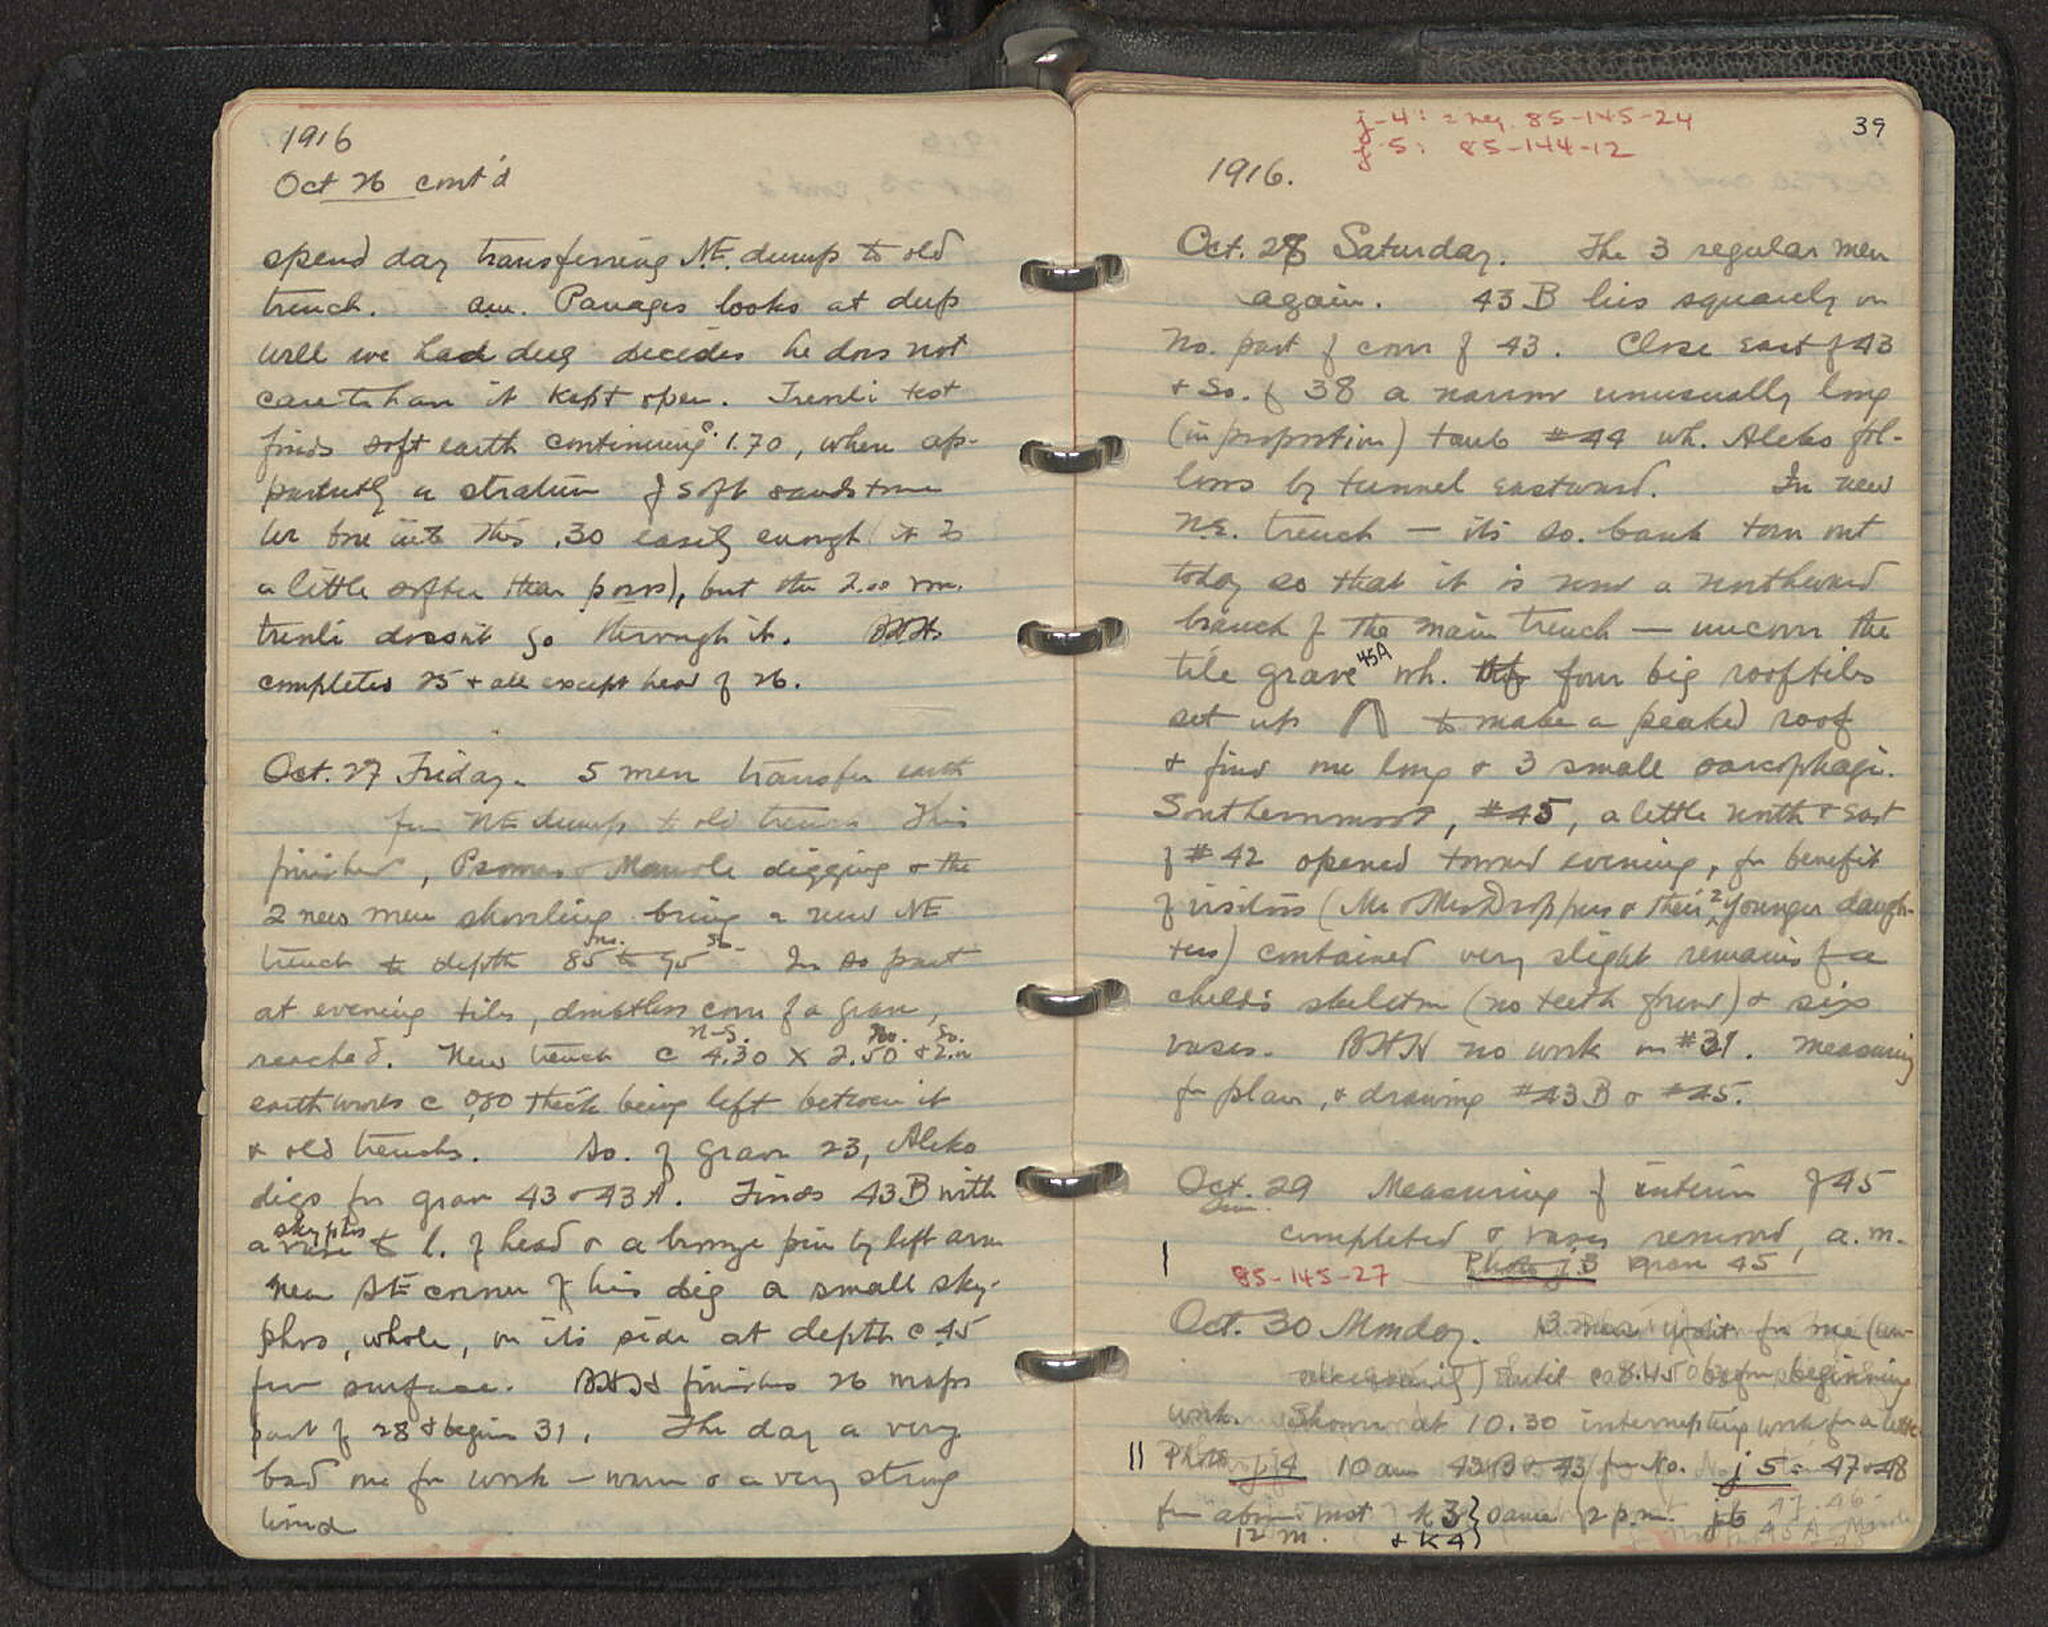 1916
Oct 26 cont'd
spend day transferring N.E. dump to old
trench. a.m. Panages looks at deep
well we had dug decides he does not
care to have it kept open. Trenli test
finds soft earth continuing 1.70, where ap-
parently a stratum of soft sandstone
We bore into this .30 easily enough (it is
a little softer than poros), but the 2.00 m.
trenli doesn't go through it. BHH
completes 25 + all except head of 26.
Oct. 27 Friday. 5 men transfer earth
fm NE dump to old trench This
finished, Psomas & Manole digging & the
2 new men shovelling bring a new NE
trench to depth 85 no. to 95 so. In so part
at evening tiles, doubtless cover of a grave,
reached. New trench c N-S. 4.30 X 2.50 No. & 2.00 So.
earth works c 0.80 thick being left between it
& old trench. So. of grave 23, Aleko
digs for grave 43 & 43A. Finds 43B with
a vase skyphos to l. of head & a bronze pin by left arm
Near SE corner of his dig a small sky-
phos, whole, on its side at depth c 45
fm surface. BHH finishes 26 maps
part of 28 & begins 31. The day a very
bad one for work – warm & a very strong
wind
j-4: = neg. 85-145-24
j-5: 85-144-12
39
1916.
Oct. 28 Saturday. The 3 regular men
again. 43B lies squarely on
No. part of cover of 43. Close east of 43
+ So. of 38 a narrow unusually long
(in proportion) tomb #44 wh. Aleko fol-
lows by tunnel eastward. In new
N.E. trench — its so. bank torn out
today so that it is now a northward
branch of the main trench — uncover the
tile grave 45A wh. four big rooftiles
set up Λ to make a peaked roof
& find one long & 3 small sarcophagi.
Southernmost, #45, a little north & east
of #42 opened toward evening, for benefit
of visitors (Mr & Mrs Droppers & their 2 younger daugh-
ters) contained very slight remains of a
child's skeleton (no teeth found) & six
vases. BHH no work on #31. Measuring
for plan, & drawing #43B & #45.
Oct. 29 Measuring of interior of 45
Sun. completed & vases removed, a.m.
85-145-27 Photo j 3 grave 45
Oct. 30 Monday. 3 men wait for me (un-
until c 8.45 before beginning
work. Shower at 10.30 interrupting work for a little
Photo j 4 10 am 43B & 43 fm No. j 5 : 47 & 48
fm above just k 3} same 2 p.m. j 6 47. 46.
12 m. & K 4} 45A